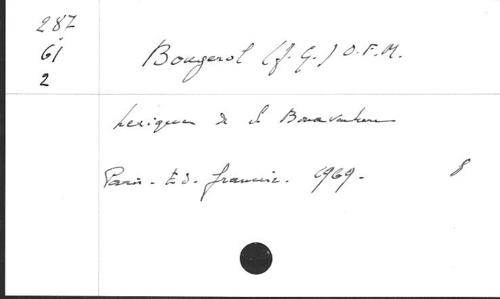 287
61
2
Bougerol (J. G.) O.F.M.
Lexique de S. Bonaventure
Paris - Ed. francisc. 1969 -
8